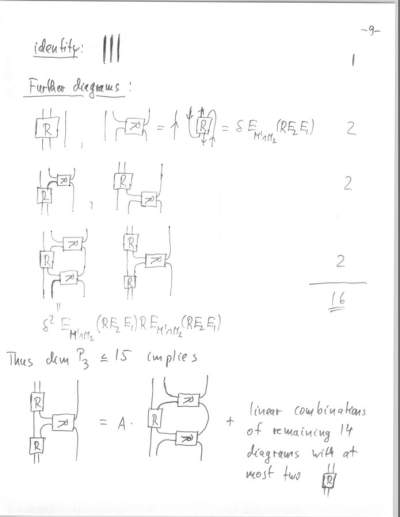 -9-
identity: |||
1
Further diagrams:
R | , | R = ↑ R = δ E_{M'∩M_2}(RE_2E_1) 2
R R , R R 2
R R R , R R R 2
16
"
δ² E_{M'∩M_2}(RE_2E_1)RE_{M'∩M_2}(RE_2E_1)
Thus dim P_3 ≤ 15 implies
R R R = A · R R R + linear combinations
of remaining 14
diagrams with at
most two R